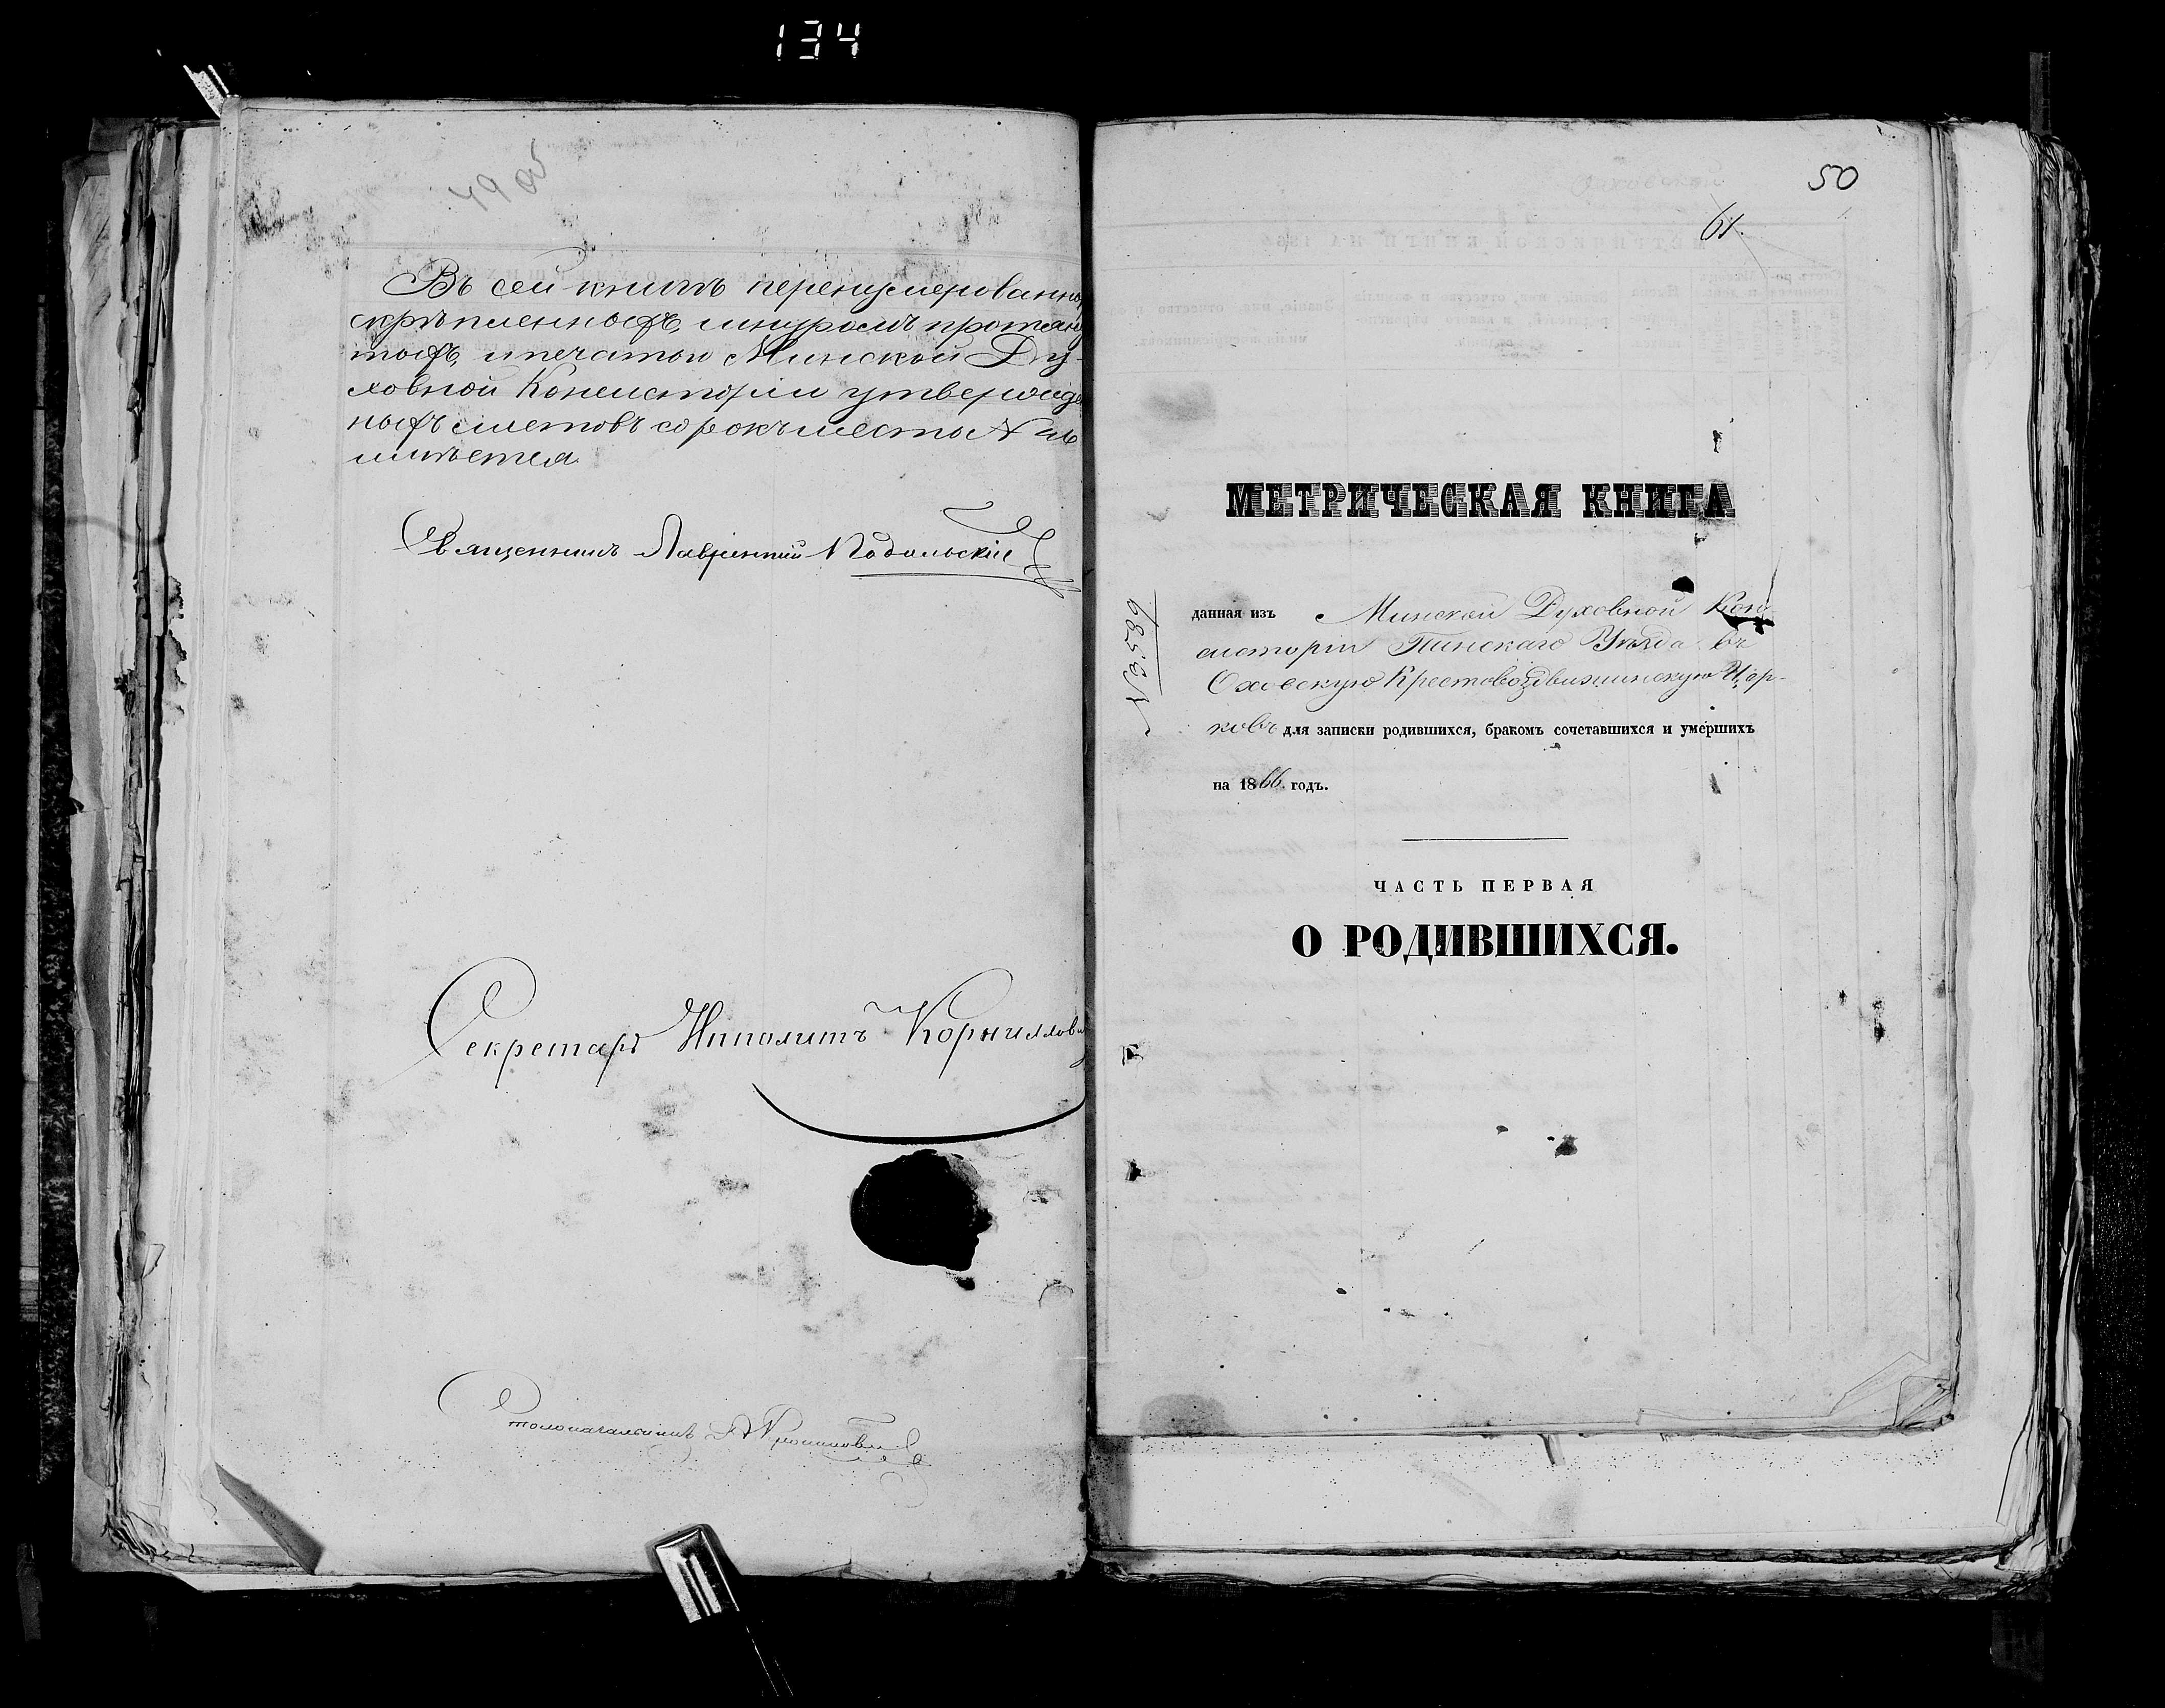 134
49 об
Въ сей книгѣ перенумерованны
скрѣпленныхъ, шнуромъ протян
тыхъ, и печатью Минской Ду-
ховной Консисторіи утвержде
ныхъ листовъ сорокъ шесть №
имѣется
Священникъ Лаврентій Подольскій
Секретарь Ипполитъ Корнилови
Столоначальникъ
50
61.
МЕТРИЧЕСКАЯ КНИГА
№ 3589
данная изъ Минской Духовной Кон
систоріи Пинскаго Уѣзда въ
Оховскую Крестовоздвиженскую Цер-
ковь для записки родившихся, бракомъ сочетавшихся и умершихъ
на 1866 годъ.
ЧАСТЬ ПЕРВАЯ
О РОДИВШИХСЯ.